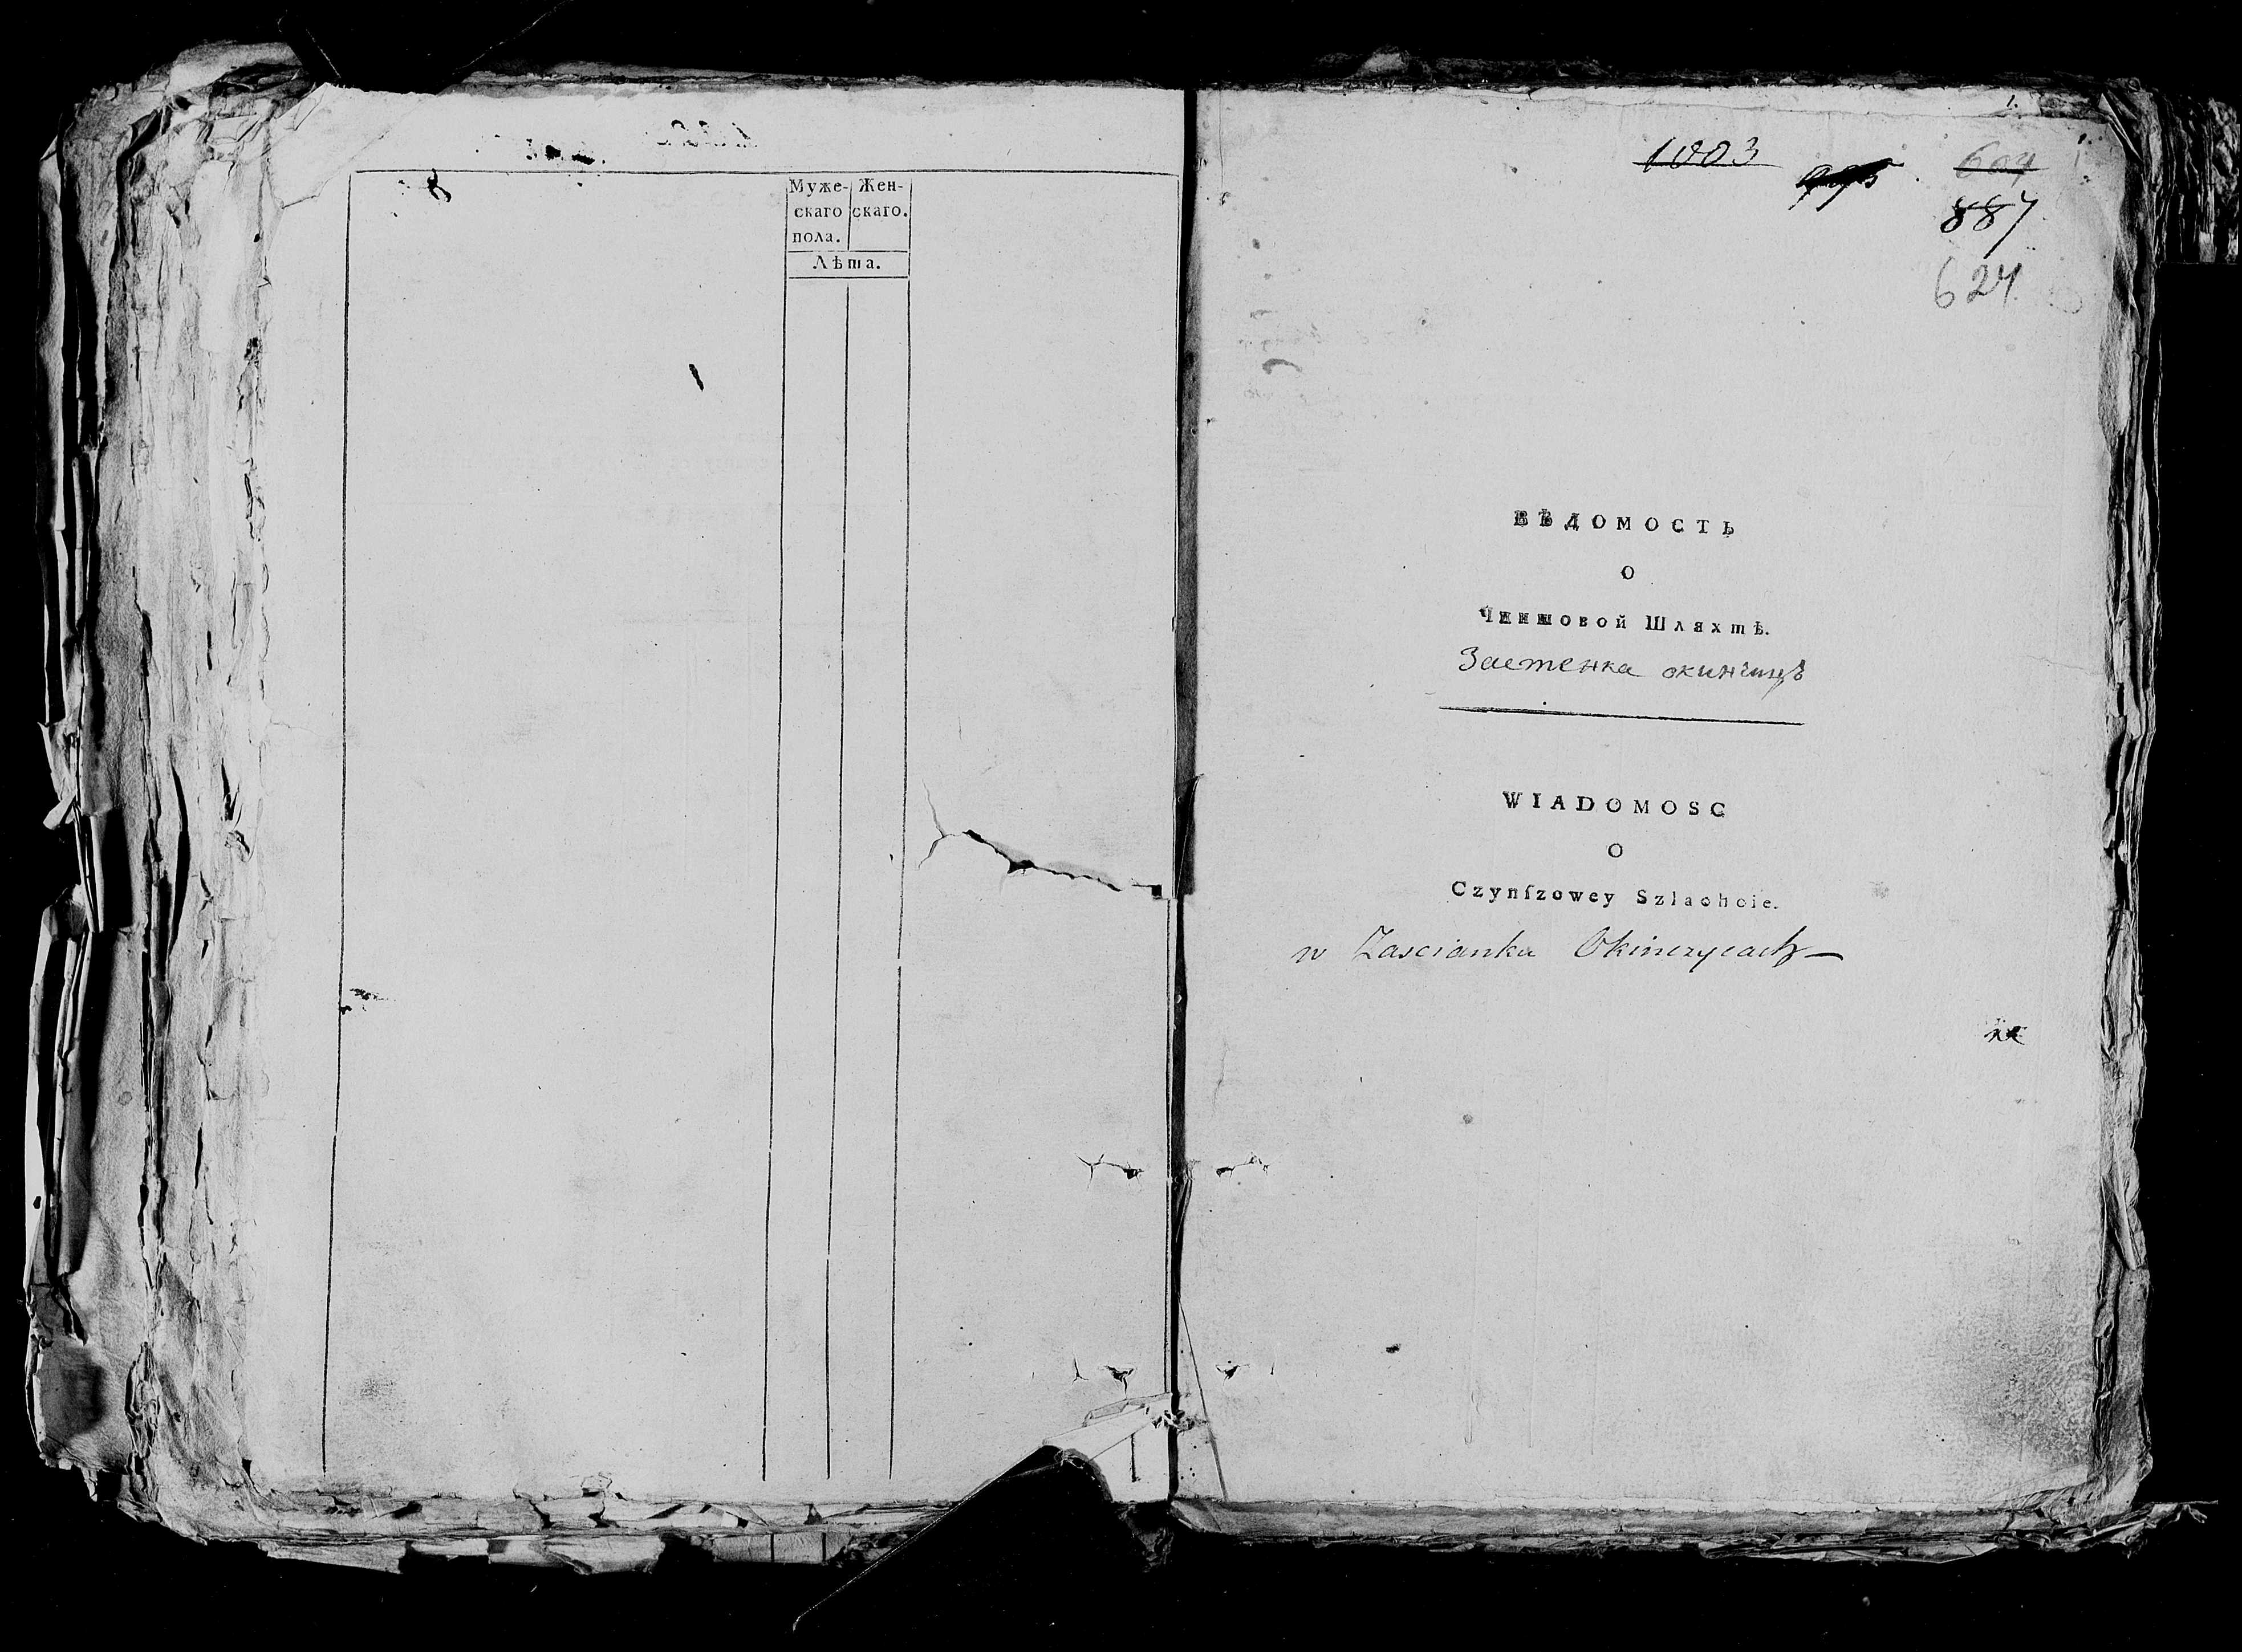 Муже- Жен-
скаго скаго.
пола.
Лѣта.
1.
1.
1003
604
887
624
ВѢДОМОСТЬ
О
Чиншовой Шляхтѣ.
Застенка окинчицъ
WIADOMOSC
O
Czynſzowey Szlachcie.
w Zascianku Okinczycach